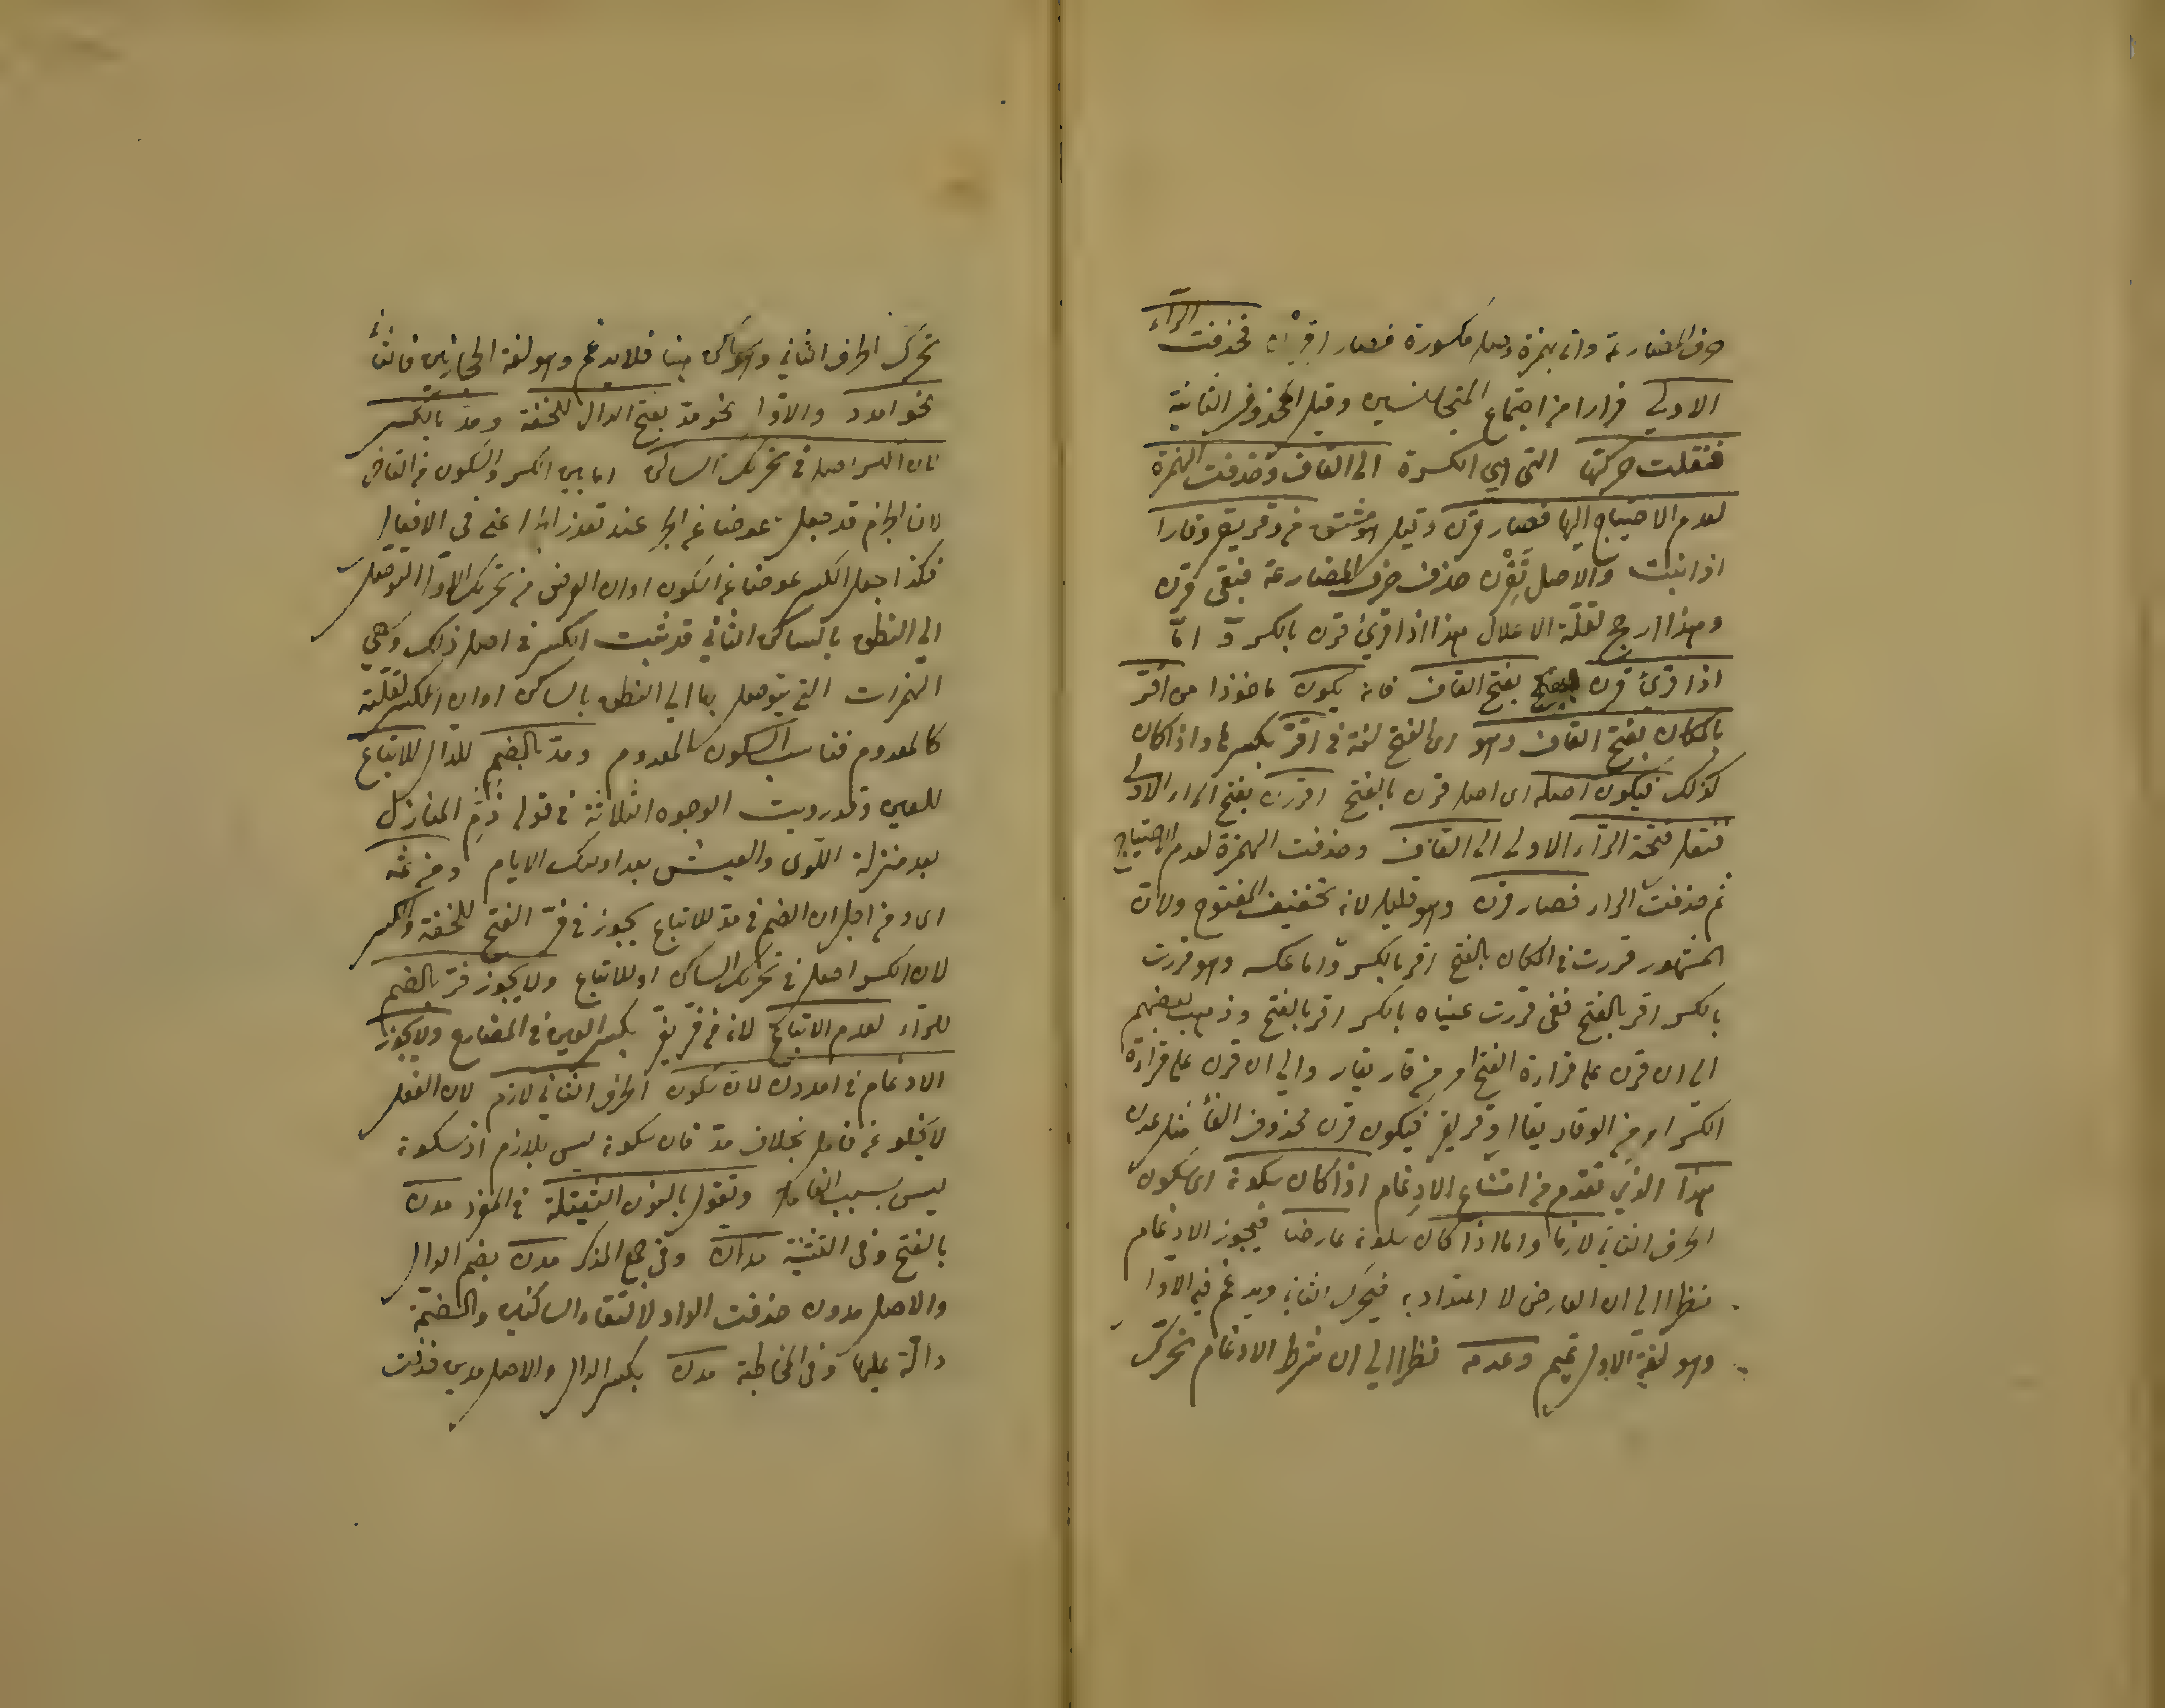 حرف المضارعة واتى بهمزة وصل مكسورة فصار اقررن فحذفت الراء
الاولى فرارا من اجتماع المتجانسين وقيل المحذوف الثانية
فنقلت حركتها التى هي الكسرة الى القاف وحذفت الهمزة
لعدم الاحتياج اليها فصار قرن وقيل هو مشتق من وقر يقر وقارا
اذا ثبت والاصل تَقِرْن حذف حرف المضارعة فبقى قرن
وهذا ارجح لقلة الاعلال هذا اذا قرئ قرن بالكسر و امّا
اذا قرئ قرن بفتح القاف فانه يكون ماخوذا من اقرّ
بالمكان بفتح القاف وهو اى الفتح لغة في اقرّ بكسرها واذا كان
كذلك فيكون اصله اى اصل قرن بالفتح اقررن بفتح الراء الاولى
فنقل فتحة الراء الاولى الى القاف وحذفت الهمزة لعدم الاحتياج
ثم حذفت الراء فصار قرن وهو قليل لانه تخفيف المفتوح ولان
المشهور قررت في المكان بالفتح اقر بالكسر واما عكسه وهو قررت
بالكسر اقر بالفتح ففى قررت عيناه بالكسر اقر بالفتح وذهب بعضهم
الى ان قرن على قراءة الفتح امر من قار يقار والى ان قرن على قراءة
الكسر امر من الوقار يقال وقر يقر فيكون قرن محذوف الفاء مثل عدن
هذا الذي تقدم من امتناع الادغام اذا كان سكونه اى سكون
الحرف الثاني لازما واما اذا كان سكونه عارضا فيجوز الادغام
نظرا الى ان العارض لا اعتداد به فيحرك الثاني ويدغم فيه الاول
وهو لغة تميم وعدمه نظرا الى ان شرط الادغام تحرك
تحرك الحرف الثاني وهو ساكن هنا فلا يدغم وهو لغة الحجازيين
نحو امدد والاول نحو مدّ بفتح الدال للخفة ومدّ بالكسر
لان الكسر اصل في تحريك الساكن لما بين الكسر والسكون من
لان الجزم قد جعل عوضا عن الجر عند تعذر الجر اعنى فى الافعال
فكذا جعل الكسر عوضا عن السكون او ان الغرض من تحريك الاول التوصل
الى النطق بالساكن الثاني قد ثبت الكسر في اصل ذلك وهي
الهمزات التي يتوصل بها الى النطق بالساكن او ان الكسر لقلته
كالمعدوم فناسب السكون المعدوم ومدّ بالضم للدال للاتباع
للعين وقد رويت الوجوه الثلاثة في قوله ذُمَّ المنازل
بعد منزلة اللوى والعيش بعد اولئك الايام ومن ثمه
اى ومن اجل ان الضم في مدّ للاتباع يجوز في فرّ الفتح للخفة والكسر
لان الكسر اصل في تحريك الساكن او للاتباع ولا يجوز فرّ بالضم
للراء لعدم الاتباع لانه من فرّ يفرّ بكسر العين في المضارع ولا يجوز
الادغام في امددن لان سكون الحرف الثاني لازم لان الفعل
لا يخلو عن فاعل بخلاف مدّ فان سكونه ليس بلازم اذ سكونه
ليس بسبب الفاعل وتقول بالنون الثقيلة في المفرد مدن
بالفتح وفى التثنية مدان وفى جمع المذكر مدن بضم الدال
والاصل مدون حذفت الواو لالتقاء الساكنين والضمة
دالة عليها وفى المخاطبة مدن بكسر الدال والاصل مدين فحذفت